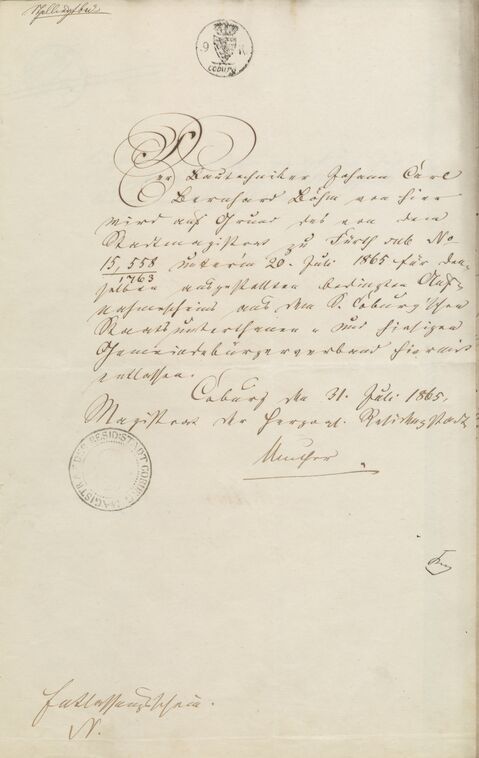 9 K
COBURG
Der Bautechniker Johann Carl
Bernhard Böhm von hier
wird auf Grund des von dem
Stadtmagistrat zu Fürth sub No
15,558
1763
unterm 20. Juli 1865 für den-
selben ausgestellten bedingten Auf-
nahmescheins aus dem S. Coburg'schen
Staatsunterthanen- und hiesigen
Gemeindebürgerverband hiermit
entlassen.
Coburg den 31. Juli 1865.
Magistrat der Herzogl. Residenzstadt
Muther
MAGISTRAT DER RESIDSTADT COBURG
Entlassungsschein.